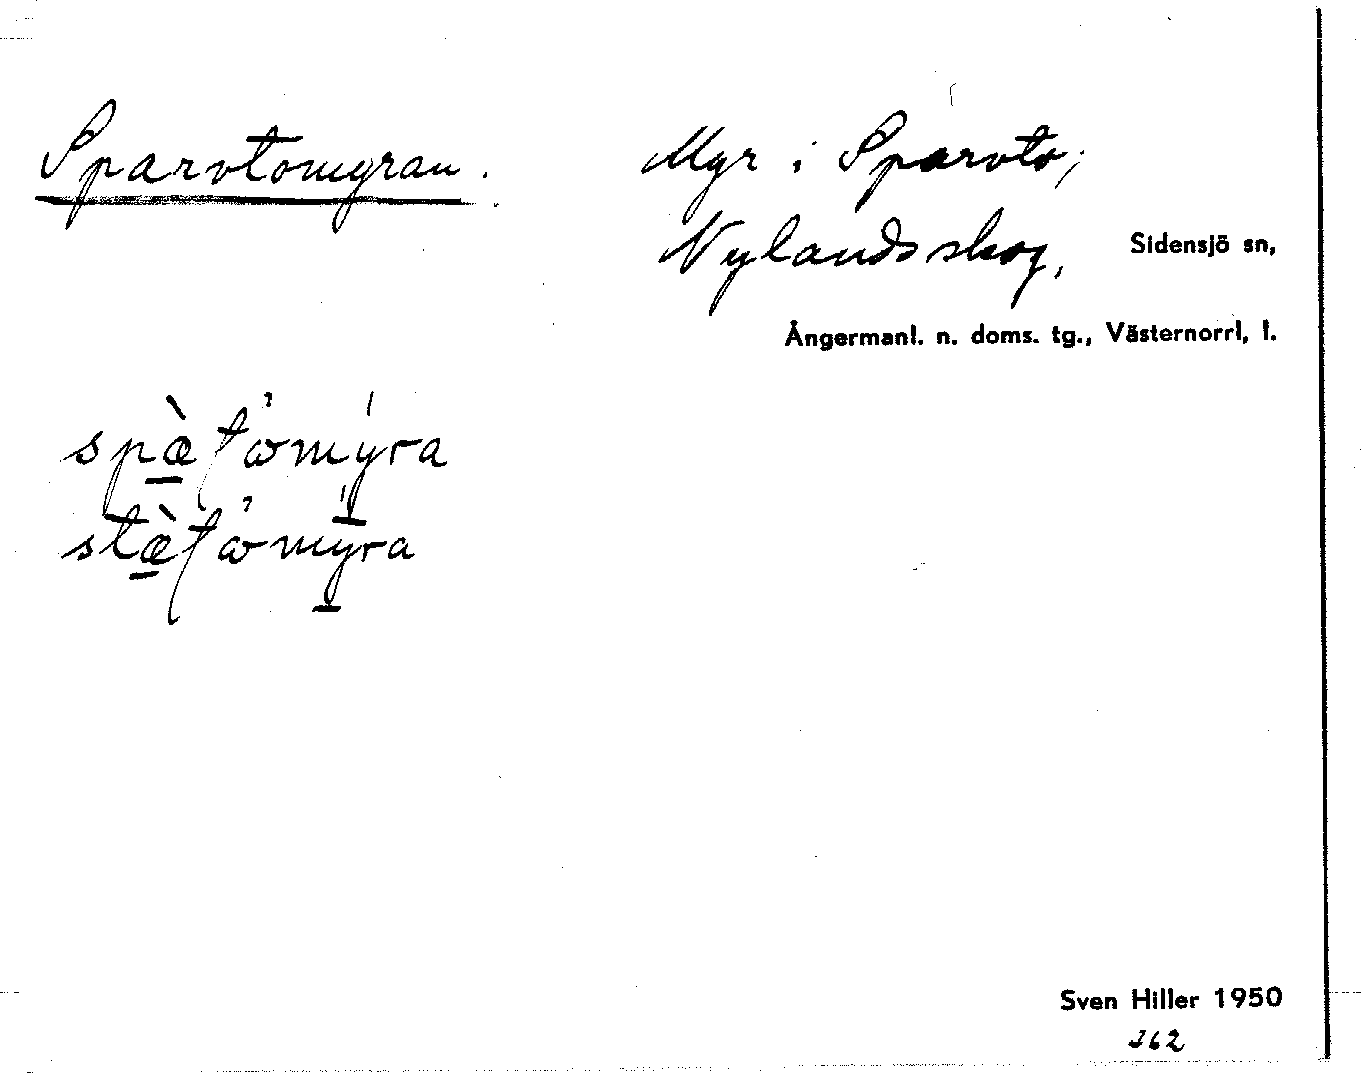 Sparvtomyran.
Myr i Sparvto,
Nylandsskog, Sidensjö sn,
Ångermanl. n. doms. tg., Västernorrl. l.
Sven Hiller 1950
262